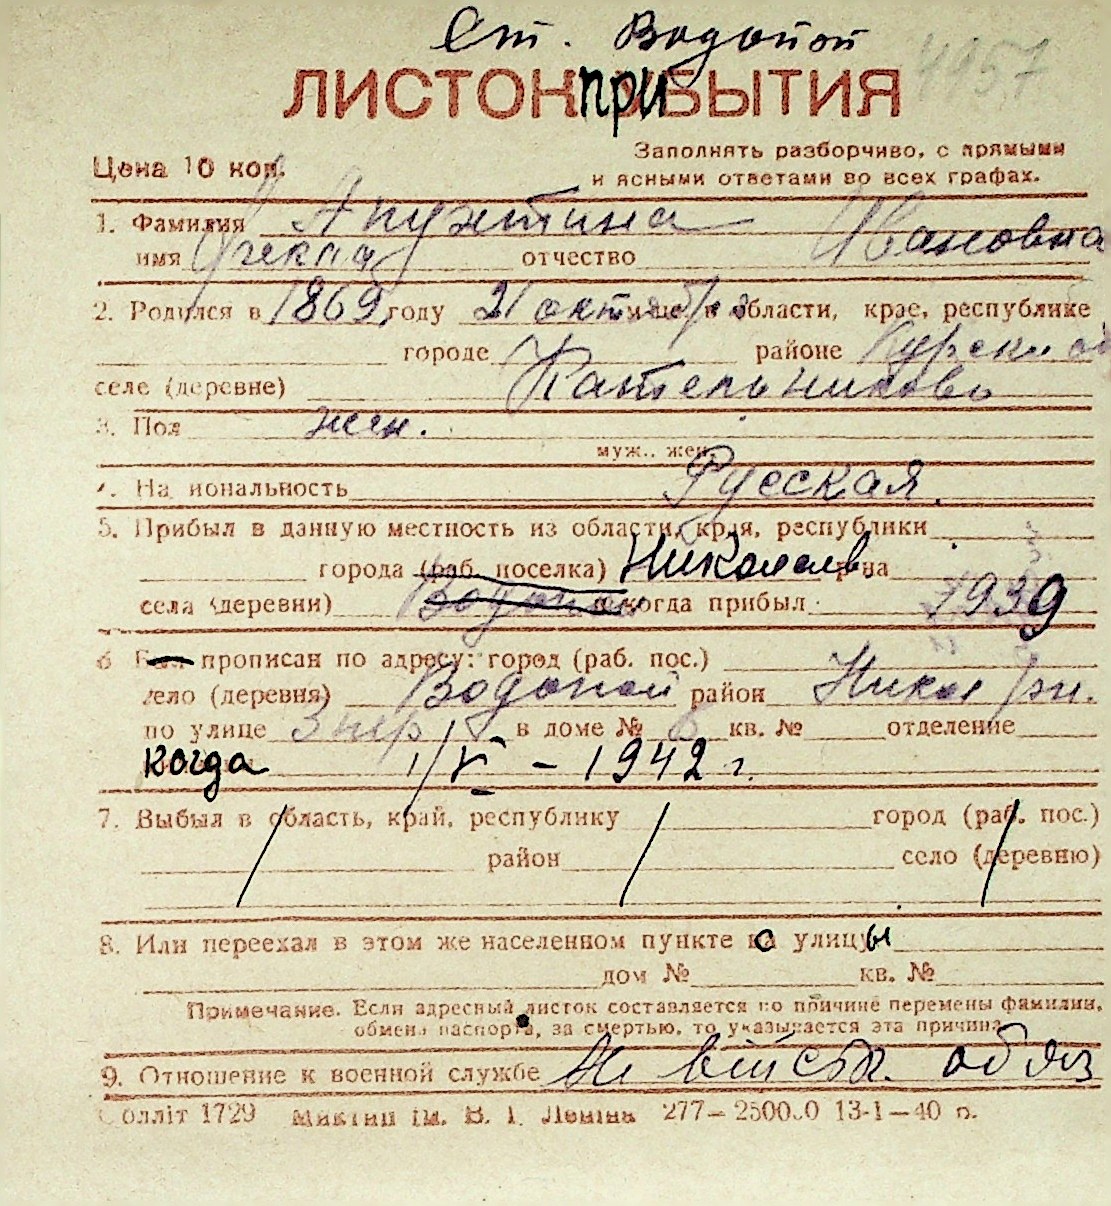 Ст. Водопой
4957
ЛИСТОК ПРИБЫТИЯ
Цена 10 коп.
Заполнять разборчиво, с прямыми
и ясными ответами во всех графах.
1. Фамилия Апухтина
имя Фекла отчество Ивановна
2. Родился в 1869 году 21 октября области, крае, республике
городе районе Курски об
селе (деревне) Кательниково
3. Пол жен.
муж., жен.
4. Национальность Русская.
5. Прибыл в данную местность из области, края, республики
города (раб. поселка) Николаев, р-на
села (деревни) Водопой когда прибыл 1939
6 Был прописан по адресу: город (раб. пос.)
село (деревня) Водопой район Никол рн.
по улице 3 пер в доме № 6 кв. № отделение
когда 1/V - 1942 г.
7. Выбыл в область, край, республику город (раб. пос.)
район село (деревню)
8. Или переехал в этом же населенном пункте с улицы
дом № кв. №
Примечание. Если адресный листок составляется по причине перемены фамилии,
обмена паспорта, за смертью, то указывается эта причина
9. Отношение к военной службе Не війсьь. обяз
Облліт 1729 Миктип ім. В. І. Леніна 277—250000 13-1—40 р.